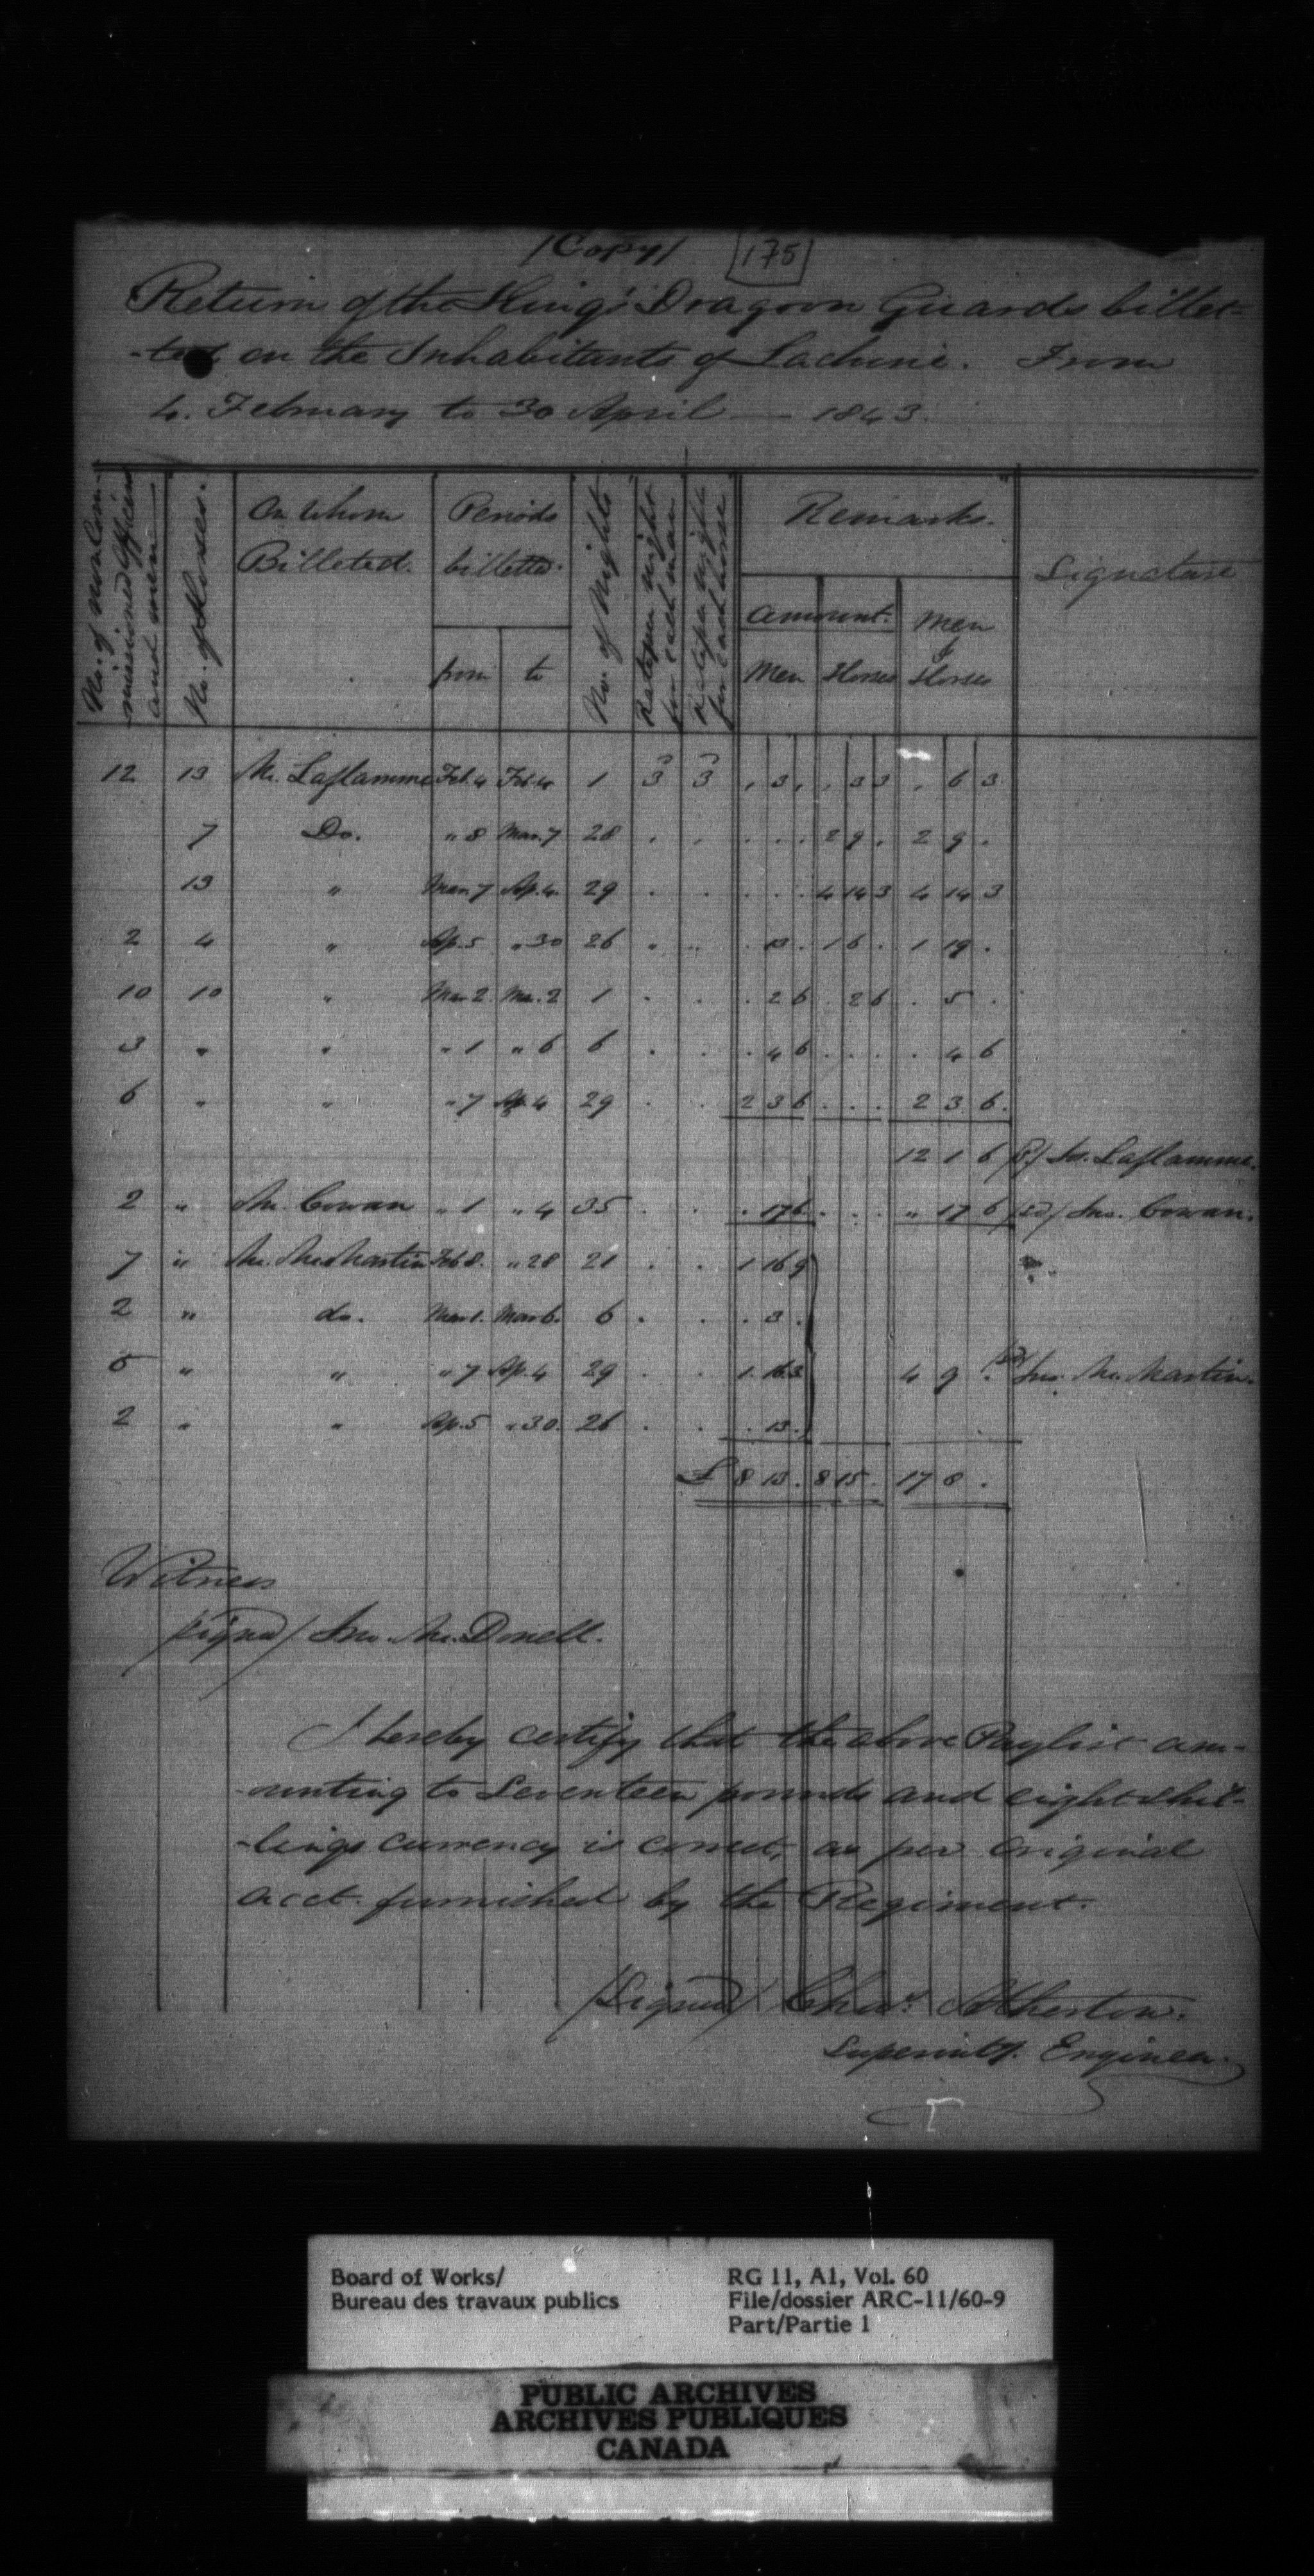 /Copy/ 175
Return of the King's Dragoon Guards billet-
-ted on the Inhabitants of Lachine. From
4. February to 30 April — 1843.
No. of non Com-
missioned Officers
and men
No. of Horses.
On whom
Billeted.
Periods
billetted.
from to
No. of Nights
Rate per night
for each man
Rate per night
for each horse
Remarks.
Amount.
Men Horses
Men
&
Horses
Signature
12 13 Mc. Laflamme Feb. 4 Feb. 4 1 3 3 . 3 . . 3 3 . 6 3
7 Do. " 8 Mar. 7 28 . . . . . 2 9 . 2 9 .
13 " Mar. 7 Ap. 4. 29 . . . . . 4 14 3 4 14 3
2 4 " Ap. 5 " 30 26 " " . 13 . 1 6 . 1 19 .
10 10 " Mar 2. Mar. 2 1 . . . 2 6 . 2 6 . 5 .
3 " " " 1 " 6 6 . . . 4 6 . . . . 4 6
6 " " " 7 Ap. 4 29 . . 2 3 6 . . . 2 3 6.
12 1 6 /Sd/ Js. Laflamme.
2 " Mc. Cowan " 1 " 4 35 . . . 17 6 . . . " 17 6 /sd/ Jno. Cowan.
7 " Mc. McMartin Feb 8. " 28 21 . . 1 16 9
2 " do. Mar 1. Mar 6. 6 . . . 3 .
5 " " " 7 Ap. 4 29 . . 1 16 3 4 9 . /sd/ Jno. Mc. Martin.
2 " " Ap. 5 " 30. 26 . . . 13 .
£ 8 13 . 8 15 . 17 8 .
Witness
/signed/ Jno. Mc. Donell.
I hereby certify that the above Paylist am-
-ounting to Seventeen pounds and eight shil-
-lings currency is correct, as per original
acct. furnished by the Regiment.
/Signed/ Chas. Atherton.
Superintt. Engineer.
Board of Works/
Bureau des travaux publics
RG 11, A1, Vol. 60
File/dossier ARC-11/60-9
Part/Partie 1
PUBLIC ARCHIVES
ARCHIVES PUBLIQUES
CANADA